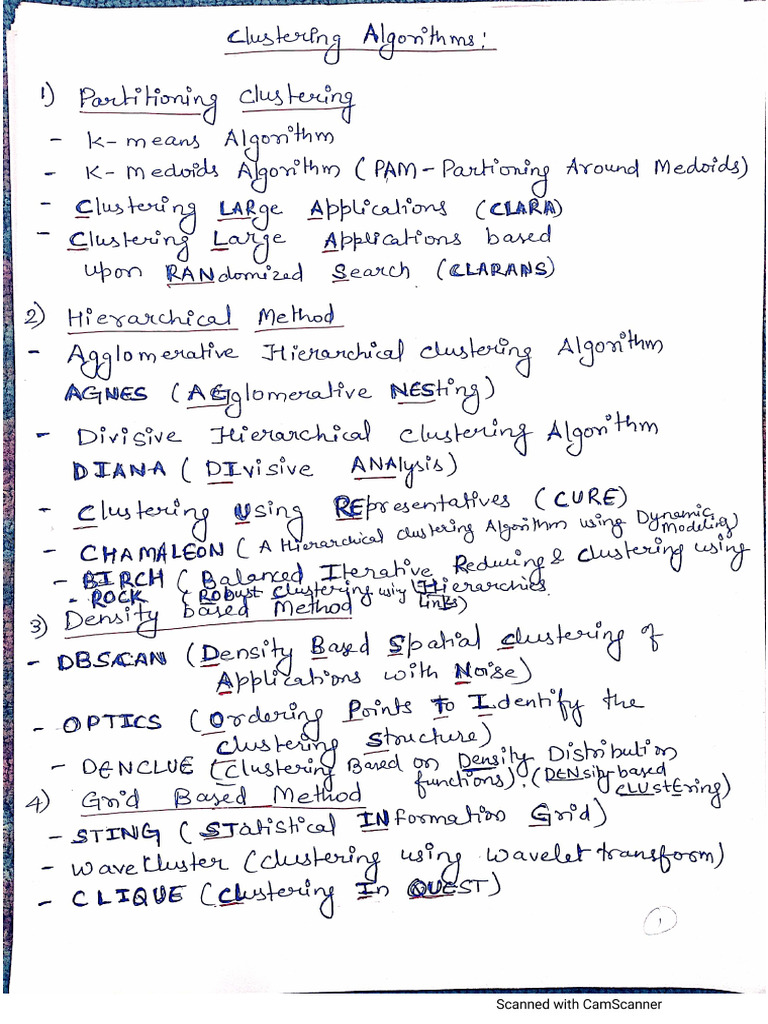 Clustering Algorithms:
1) Partitioning Clustering
- K-means Algorithm
- K-Medoids Algorithm (PAM-Partioning Around Medoids)
- Clustering LARge Applications (CLARA)
- Clustering Large Applications based
upon RANdomized Search (CLARANS)
2) Hierarchical Method
- Agglomerative Hierarchical clustering Algorithm
AGNES (AGglomerative NESting)
- Divisive Hierarchical clustering Algorithm
DIANA (DIvisive ANAlysis)
- Clustering Using REpresentatives (CURE)
- CHAMALEON (A Hierarchical clustering Algorithm using Dynamic Modeling)
- BIRCH (Balanced Iterative Reducing & clustering using Hierarchies
- ROCK (RObust Clustering using linKs)
3) Density based Method
- DBSCAN (Density Based Spatial clustering of
Applications with Noise)
- OPTICS (Ordering Points To Identify the
Clustering Structure)
- DENCLUE (Clustering Based on Density Distribution
functions). (DENsity-based CLUstEring)
4) Grid Based Method
- STING (STatistical INformation Grid)
- Wavecluster (clustering using wavelet transform)
- CLIQUE (Clustering In QUEST)
1
Scanned with CamScanner